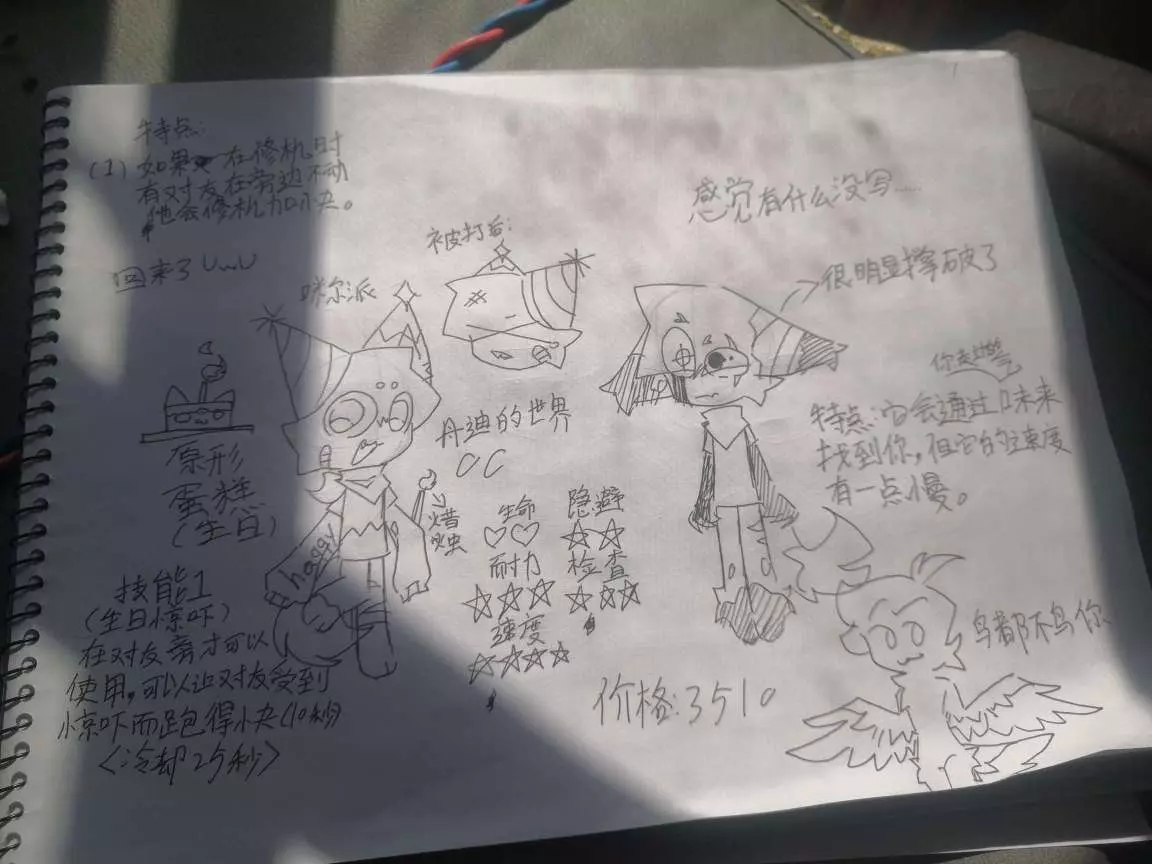 特点：
(1) 如果在修机时
有对友在旁边不动
他会修机加小夬。
回来了 UwU
咪尔派
被打后：
感觉有什么没写……
很明显撑破了
原形
蛋糕
(生日)
丹迪的世界
OC
happy
蜡烛
生命
♡♡
隐避
☆☆
耐力
☆☆☆
检查
☆☆☆
速度
☆☆☆☆
特点：它会通过口味来
找到你，但它的速度
有一点慢。
技能1
(生日惊吓)
在对友旁才可以
使用，可以让对友受到
惊吓而跑得小夬(10秒)
<冷却25秒>
价格：3510
鸟都不鸟你